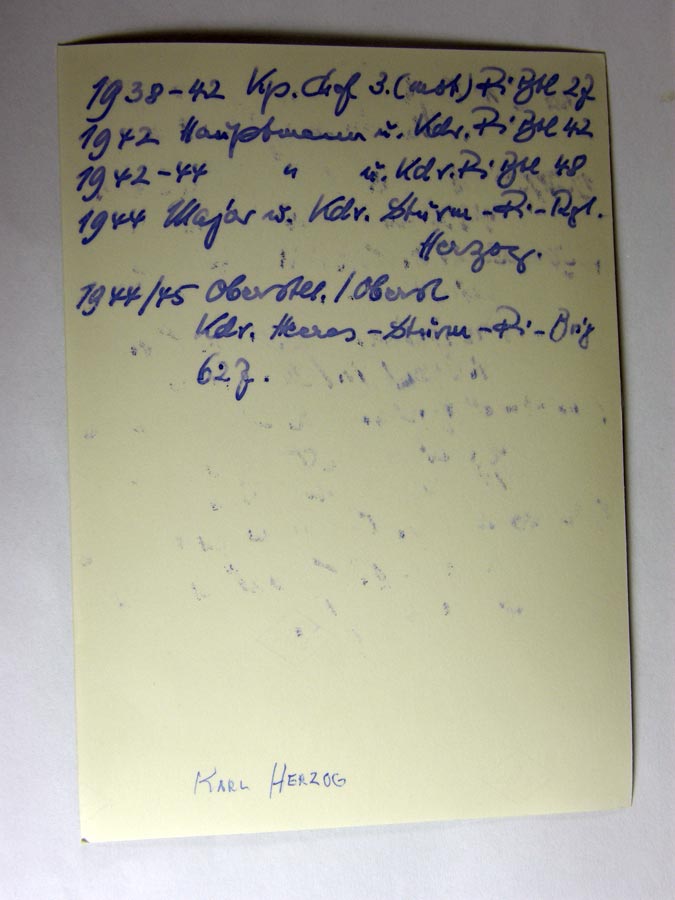 1938-42 Kp. Chef 3.(mot) Pi Btl 27
1942 Hauptmann u. Kdr. Pi Btl 42
1942-44 " u. Kdr. Pi Btl 48
1944 Major u. Kdr. Sturm-Pi-Rgt.
Herzog.
1944/45 Oberstlt./Oberst
Kdr. Heeres-Sturm-Pi-Brig
627.
KARL HERZOG